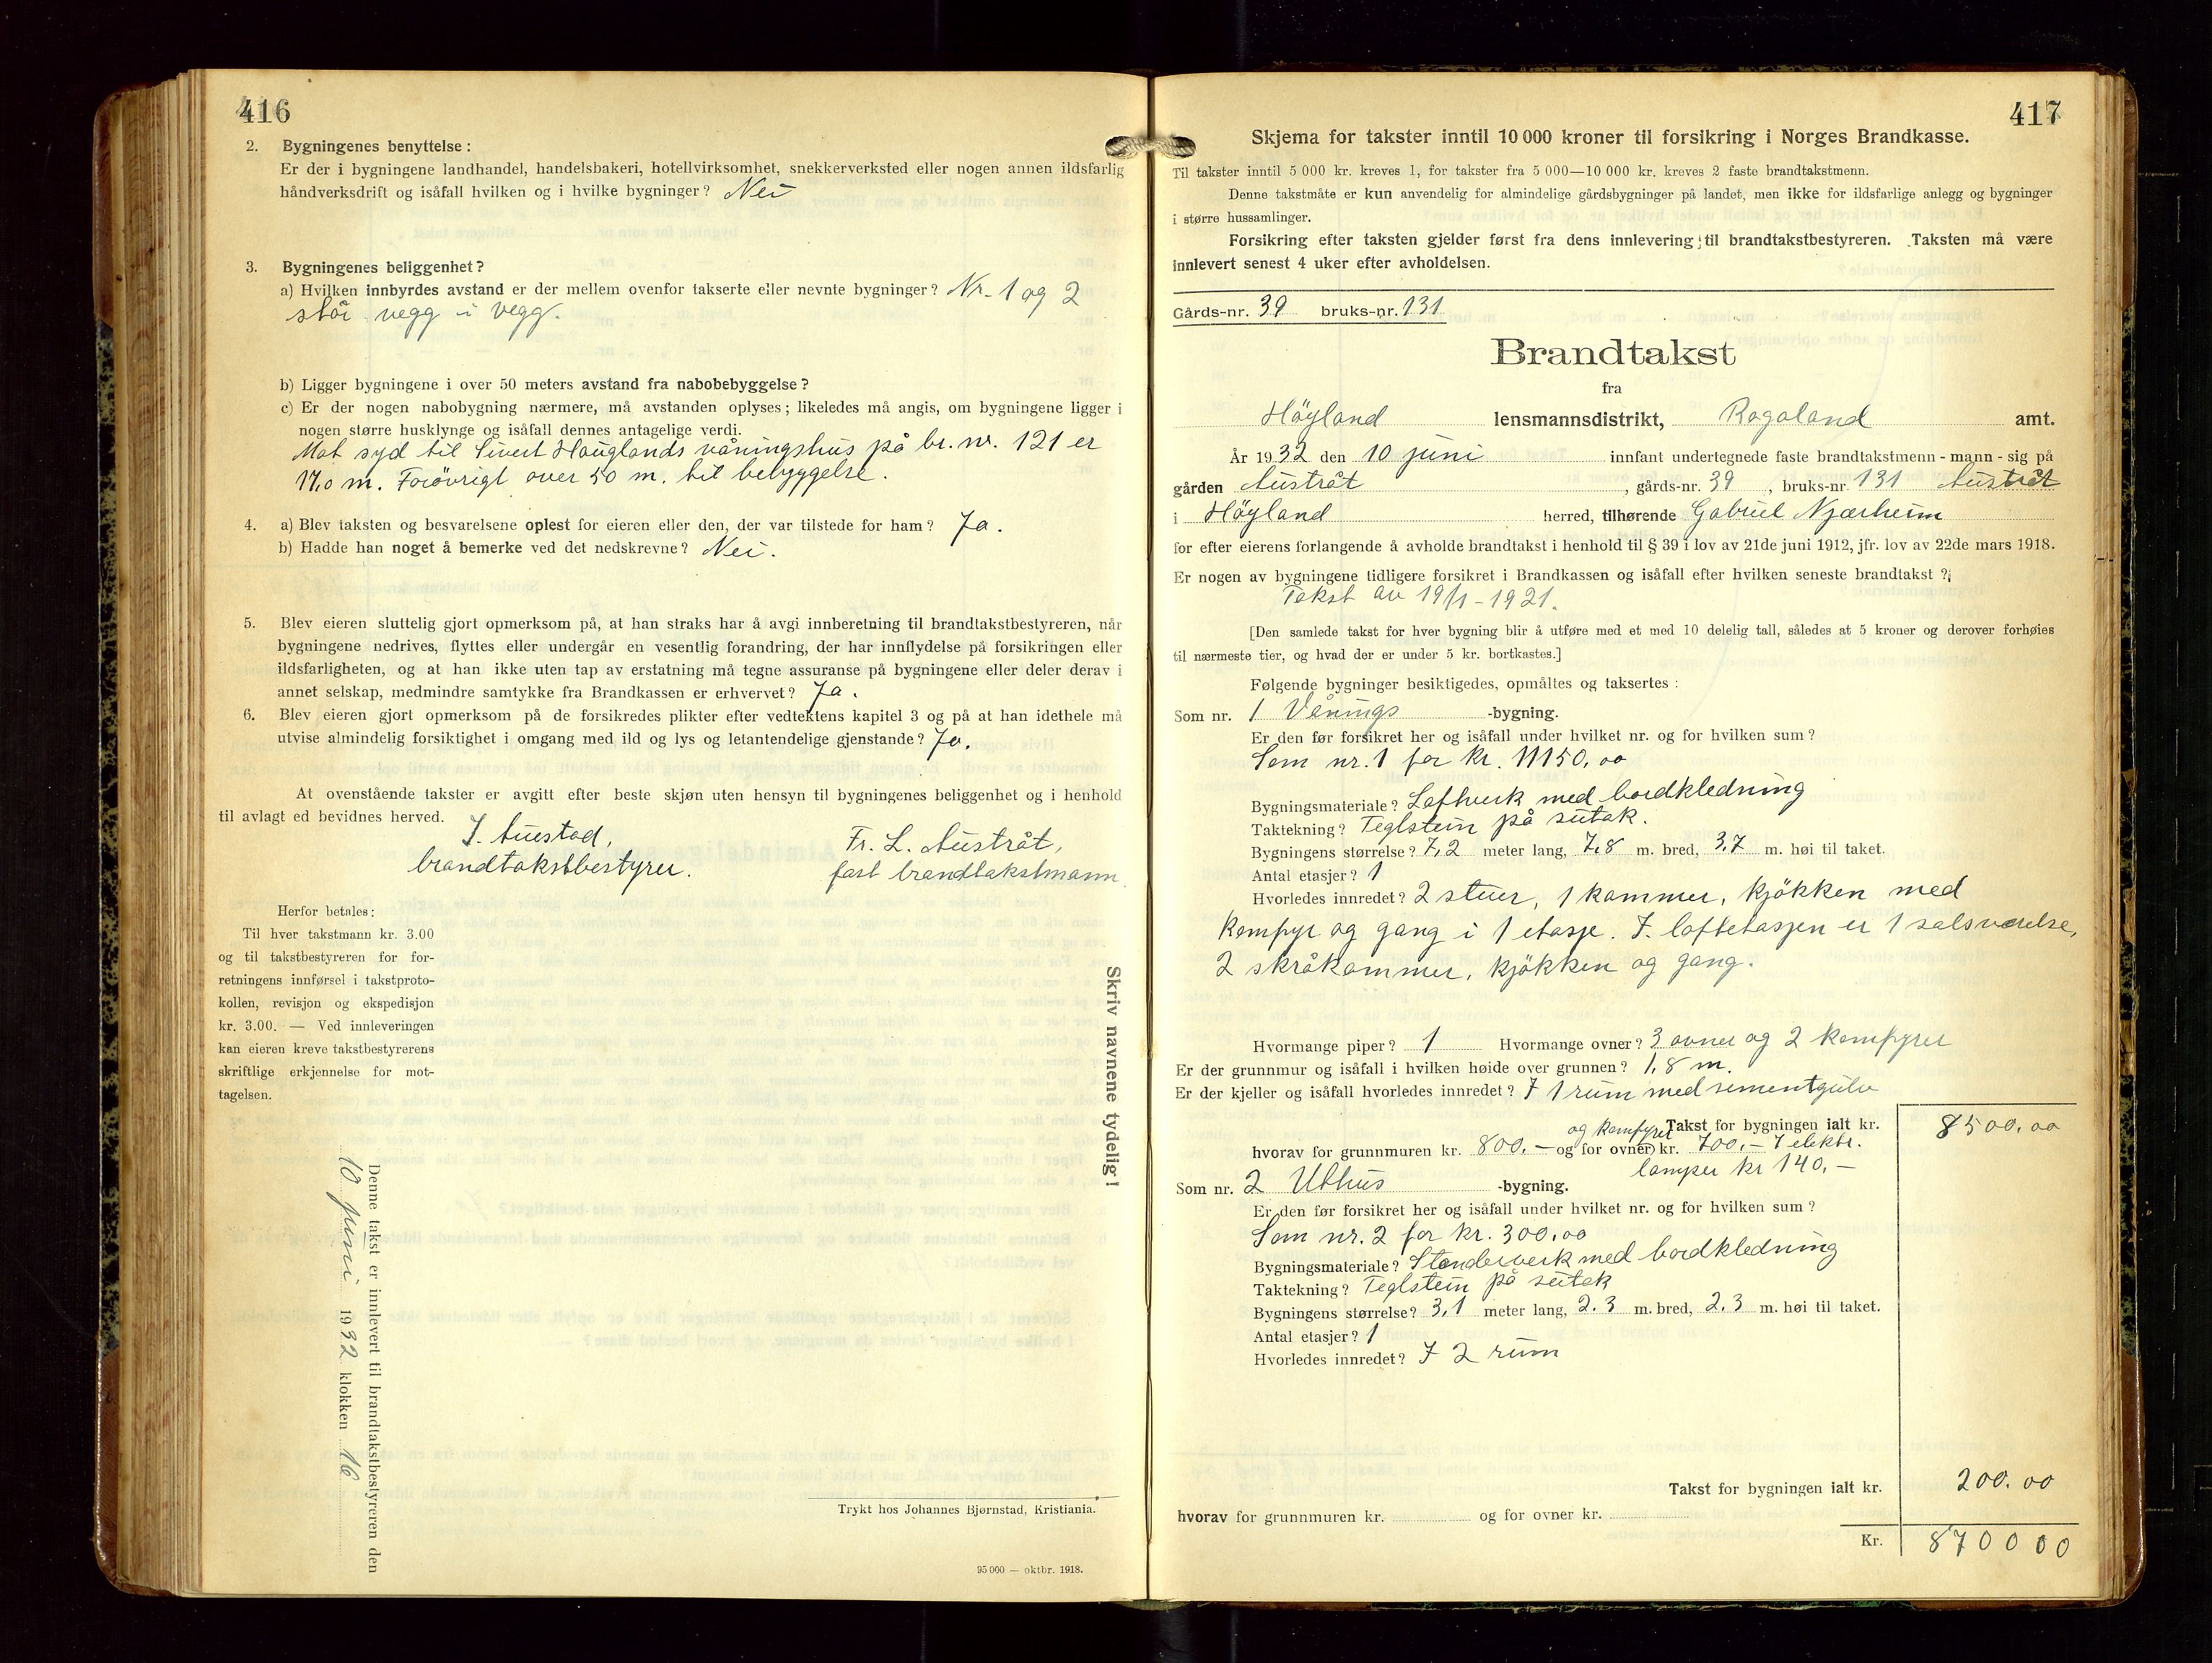 416
2. Bygningenes benyttelse:
Er der i bygningene landhandel, handelsbakeri, hotellvirksomhet, snekkerverksted eller nogen annen ildsfarlig
håndverksdrift og isåfall hvilken og i hvilke bygninger? Nei
3. Bygningenes beliggenhet?
a) Hvilken innbyrdes avstand er der mellem ovenfor takserte eller nevnte bygninger? Nr. 1 og 2
står vegg i vegg.
b) Ligger bygningene i over 50 meters avstand fra nabobebyggelse?
c) Er der nogen nabobygning nærmere, må avstanden oplyses; likeledes må angis, om bygningene ligger i
nogen større husklynge og isåfall dennes antagelige verdi.
Mot syd til Sivert Hauglands våningshus på br. nr. 121 er
17,0 m. Forövrigt over 50 m. til bebyggelse.
4. a) Blev taksten og besvarelsene oplest for eieren eller den, der var tilstede for ham? Ja.
b) Hadde han noget å bemerke ved det nedskrevne? Nei.
5. Blev eieren sluttelig gjort opmerksom på, at han straks har å avgi innberetning til brandtakstbestyreren, når
bygningene nedrives, flyttes eller undergår en vesentlig forandring, der har innflydelse på forsikringen eller
ildsfarligheten, og at han ikke uten tap av erstatning må tegne assuranse på bygningene eller deler derav i
annet selskap, medmindre samtykke fra Brandkassen er erhvervet? Ja.
6. Blev eieren gjort opmerksom på de forsikredes plikter efter vedtektens kapitel 3 og på at han idethele må
utvise almindelig forsiktighet i omgang med ild og lys og letantendelige gjenstande? Ja.
At ovenstående takster er avgitt efter beste skjøn uten hensyn til bygningenes beliggenhet og i henhold
til avlagt ed bevidnes herved.
J. Auestad,
brandtakstbestyrer.
Fr. L. Austråt,
fast brandtakstmann
Herfor betales:
Til hver takstmann kr. 3.00
og til takstbestyreren for for-
retningens innførsel i takstproto-
kollen, revisjon og ekspedisjon
kr. 3.00. — Ved innleveringen
kan eieren kreve takstbestyrerens
skriftlige erkjennelse for mot-
tagelsen.
Skriv navnene tydelig!
Denne takst er innlevert til brandtakstbestyreren den
10 juni 1932 klokken 16
Trykt hos Johannes Bjørnstad, Kristiania.
95 000 — oktbr. 1918.
417
Skjema for takster inntil 10 000 kroner til forsikring i Norges Brandkasse.
Til takster inntil 5 000 kr. kreves 1, for takster fra 5 000—10 000 kr. kreves 2 faste brandtakstmenn.
Denne takstmåte er kun anvendelig for almindelige gårdsbygninger på landet, men ikke for ildsfarlige anlegg og bygninger
i større hussamlinger.
Forsikring efter taksten gjelder først fra dens innlevering til brandtakstbestyreren. Taksten må være
innlevert senest 4 uker efter avholdelsen.
Gårds-nr. 39 bruks-nr. 131
Brandtakst
fra
Höyland lensmannsdistrikt, Rogaland amt.
År 1932 den 10 juni innfant undertegnede faste brandtakstmenn - mann - sig på
gården Austråt, gårds-nr. 39, bruks-nr. 131 Austråt
i Höyland herred, tilhørende Gabriel Njærheim
for efter eierens forlangende å avholde brandtakst i henhold til § 39 i lov av 21de juni 1912, jfr. lov av 22de mars 1918.
Er nogen av bygningene tidligere forsikret i Brandkassen og isåfall efter hvilken seneste brandtakst?
Takst av 19/1 - 1921.
[Den samlede takst for hver bygning blir å utføre med et med 10 delelig tall, således at 5 kroner og derover forhøies
til nærmeste tier, og hvad der er under 5 kr. bortkastes.]
Følgende bygninger besiktigedes, opmåltes og taksertes:
Som nr. 1 Vånings -bygning.
Er den før forsikret her og isåfall under hvilket nr. og for hvilken sum?
Som nr. 1 for kr. 11150,00
Bygningsmateriale? Loftverk med bordkledning
Taktekning? Teglstein på sutak.
Bygningens størrelse? 7,2 meter lang, 7,8 m. bred, 3,7 m. høi til taket.
Antal etasjer? 1
Hvorledes innredet? 2 stuer, 1 kammer, kjökken med
komfyr og gang i 1 etasje. I loftetasjen er 1 salsværelse,
2 skråkammer, kjökken og gang.
Hvormange piper? 1 Hvormange ovner? 3 ovner og 2 komfyrer
Er der grunnmur og isåfall i hvilken høide over grunnen? 1,8 m.
Er der kjeller og isåfall hvorledes innredet? I 1 rum med sementgulv
Takst for bygningen ialt kr. 8500.00
og komfyrer
hvorav for grunnmuren kr. 800.— og for ovner kr. 700.— 7 elektr.
lamper kr 140.—
Som nr. 2 Uthus -bygning.
Er den før forsikret her og isåfall under hvilket nr. og for hvilken sum?
Som nr. 2 for kr. 300,00
Bygningsmateriale? Stenderverk med bordkledning
Taktekning? Teglstein på sutak
Bygningens størrelse? 3,1 meter lang, 2.3 m. bred, 2.3 m. høi til taket.
Antal etasjer? 1
Hvorledes innredet? I 2 rum
Takst for bygningen ialt kr. 200.00
hvorav for grunnmuren kr. og for ovner kr.
Kr. 8700 00